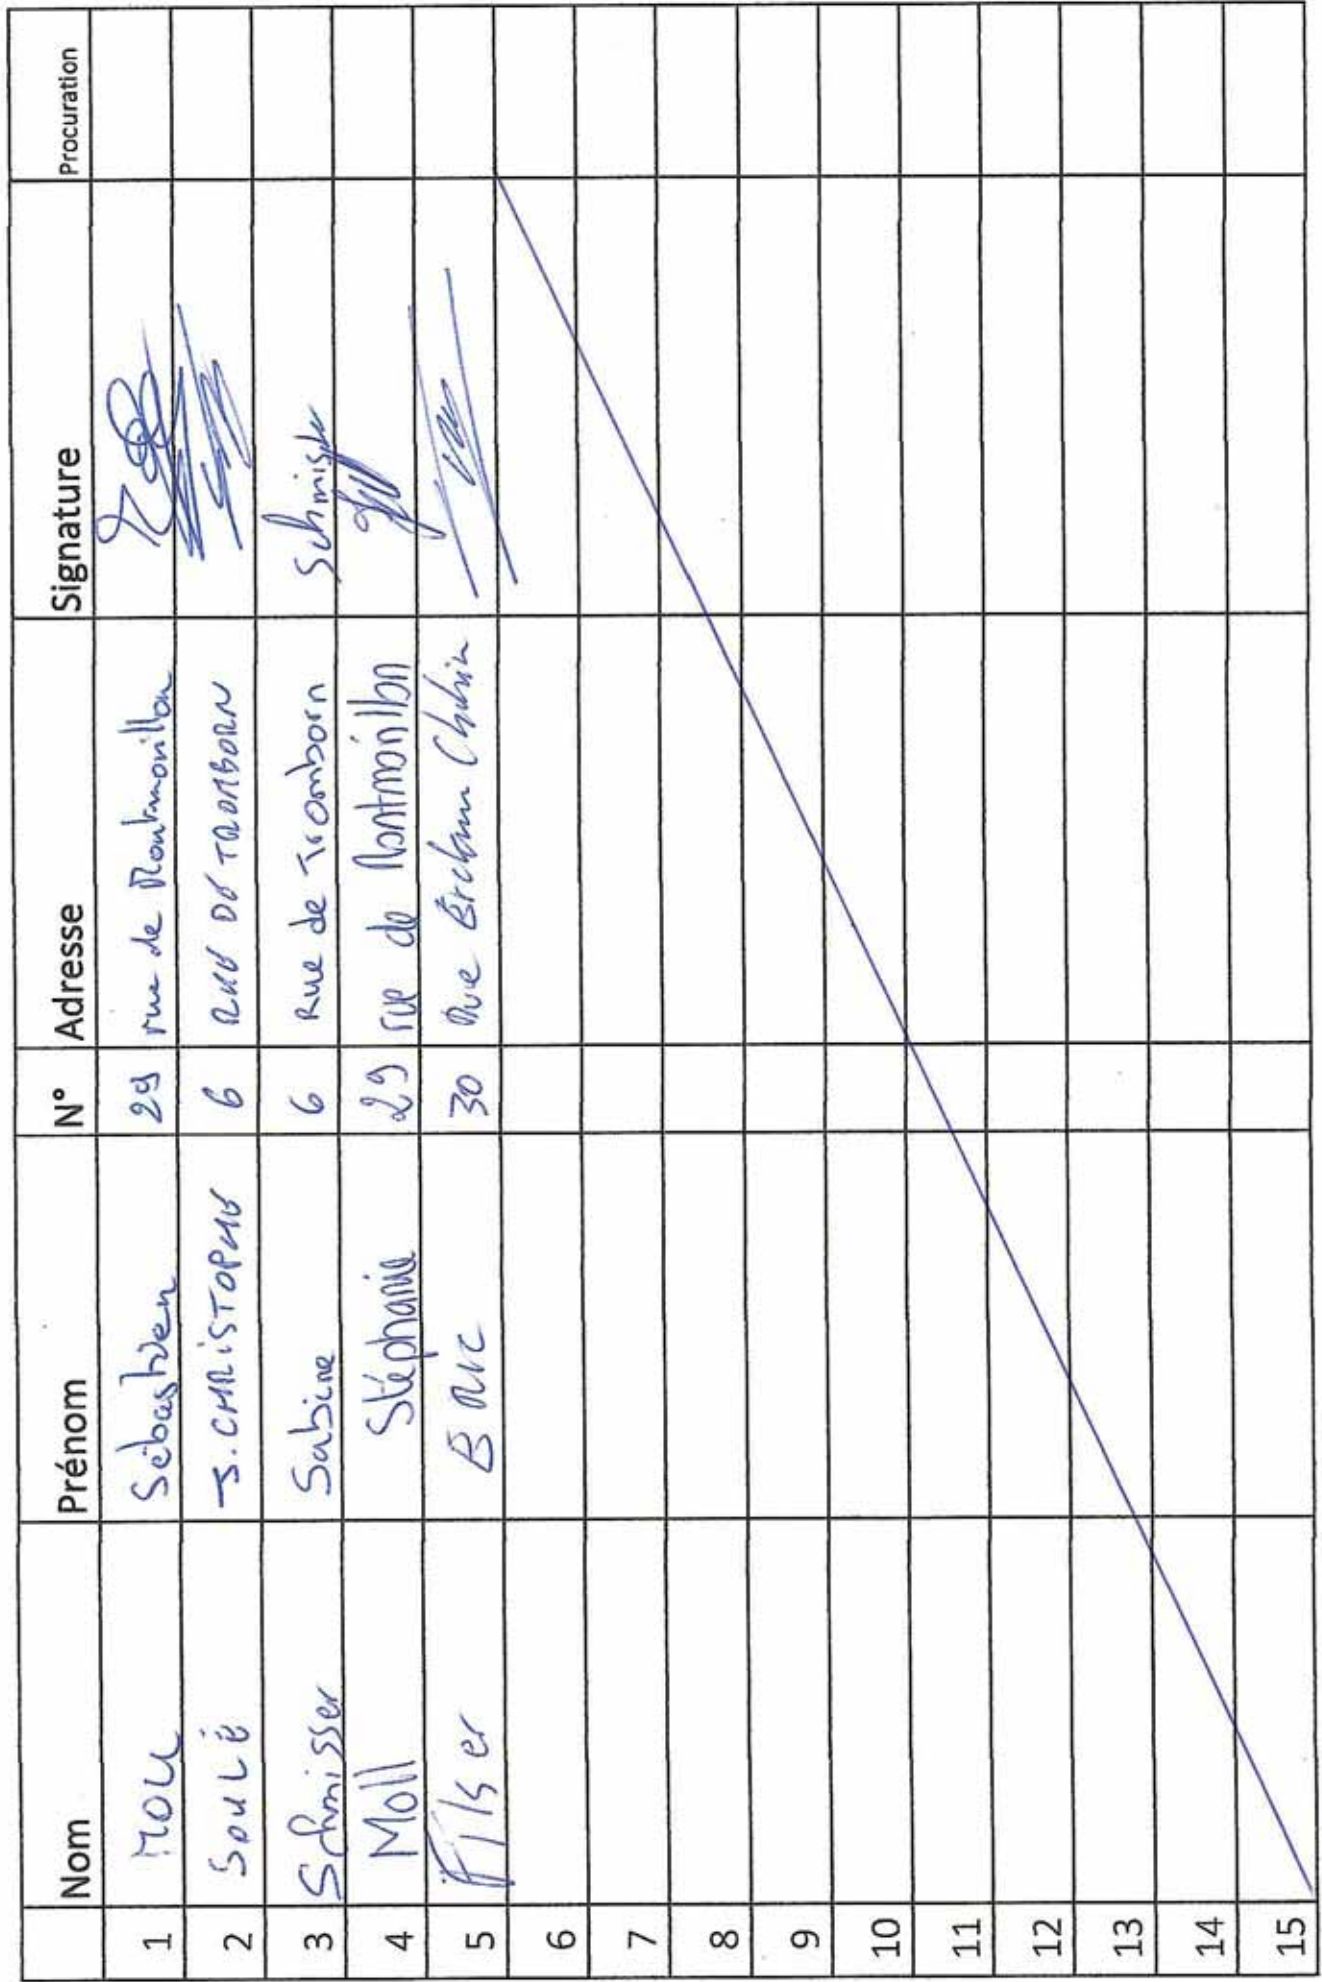 Nom Prénom N° Adresse Signature Procuration
1 MOLL Sébastien 29 rue de Montmorillon
2 SOULÉ J. CHRISTOPHE 6 RUE DE TROMBORN
3 Schmisser Sabine 6 Rue de Tromborn Schmisser
4 Moll Stéphanie 29 rue de Montmorillon
5 Filser ERIC 30 Rue
6
7
8
9
10
11
12
13
14
15